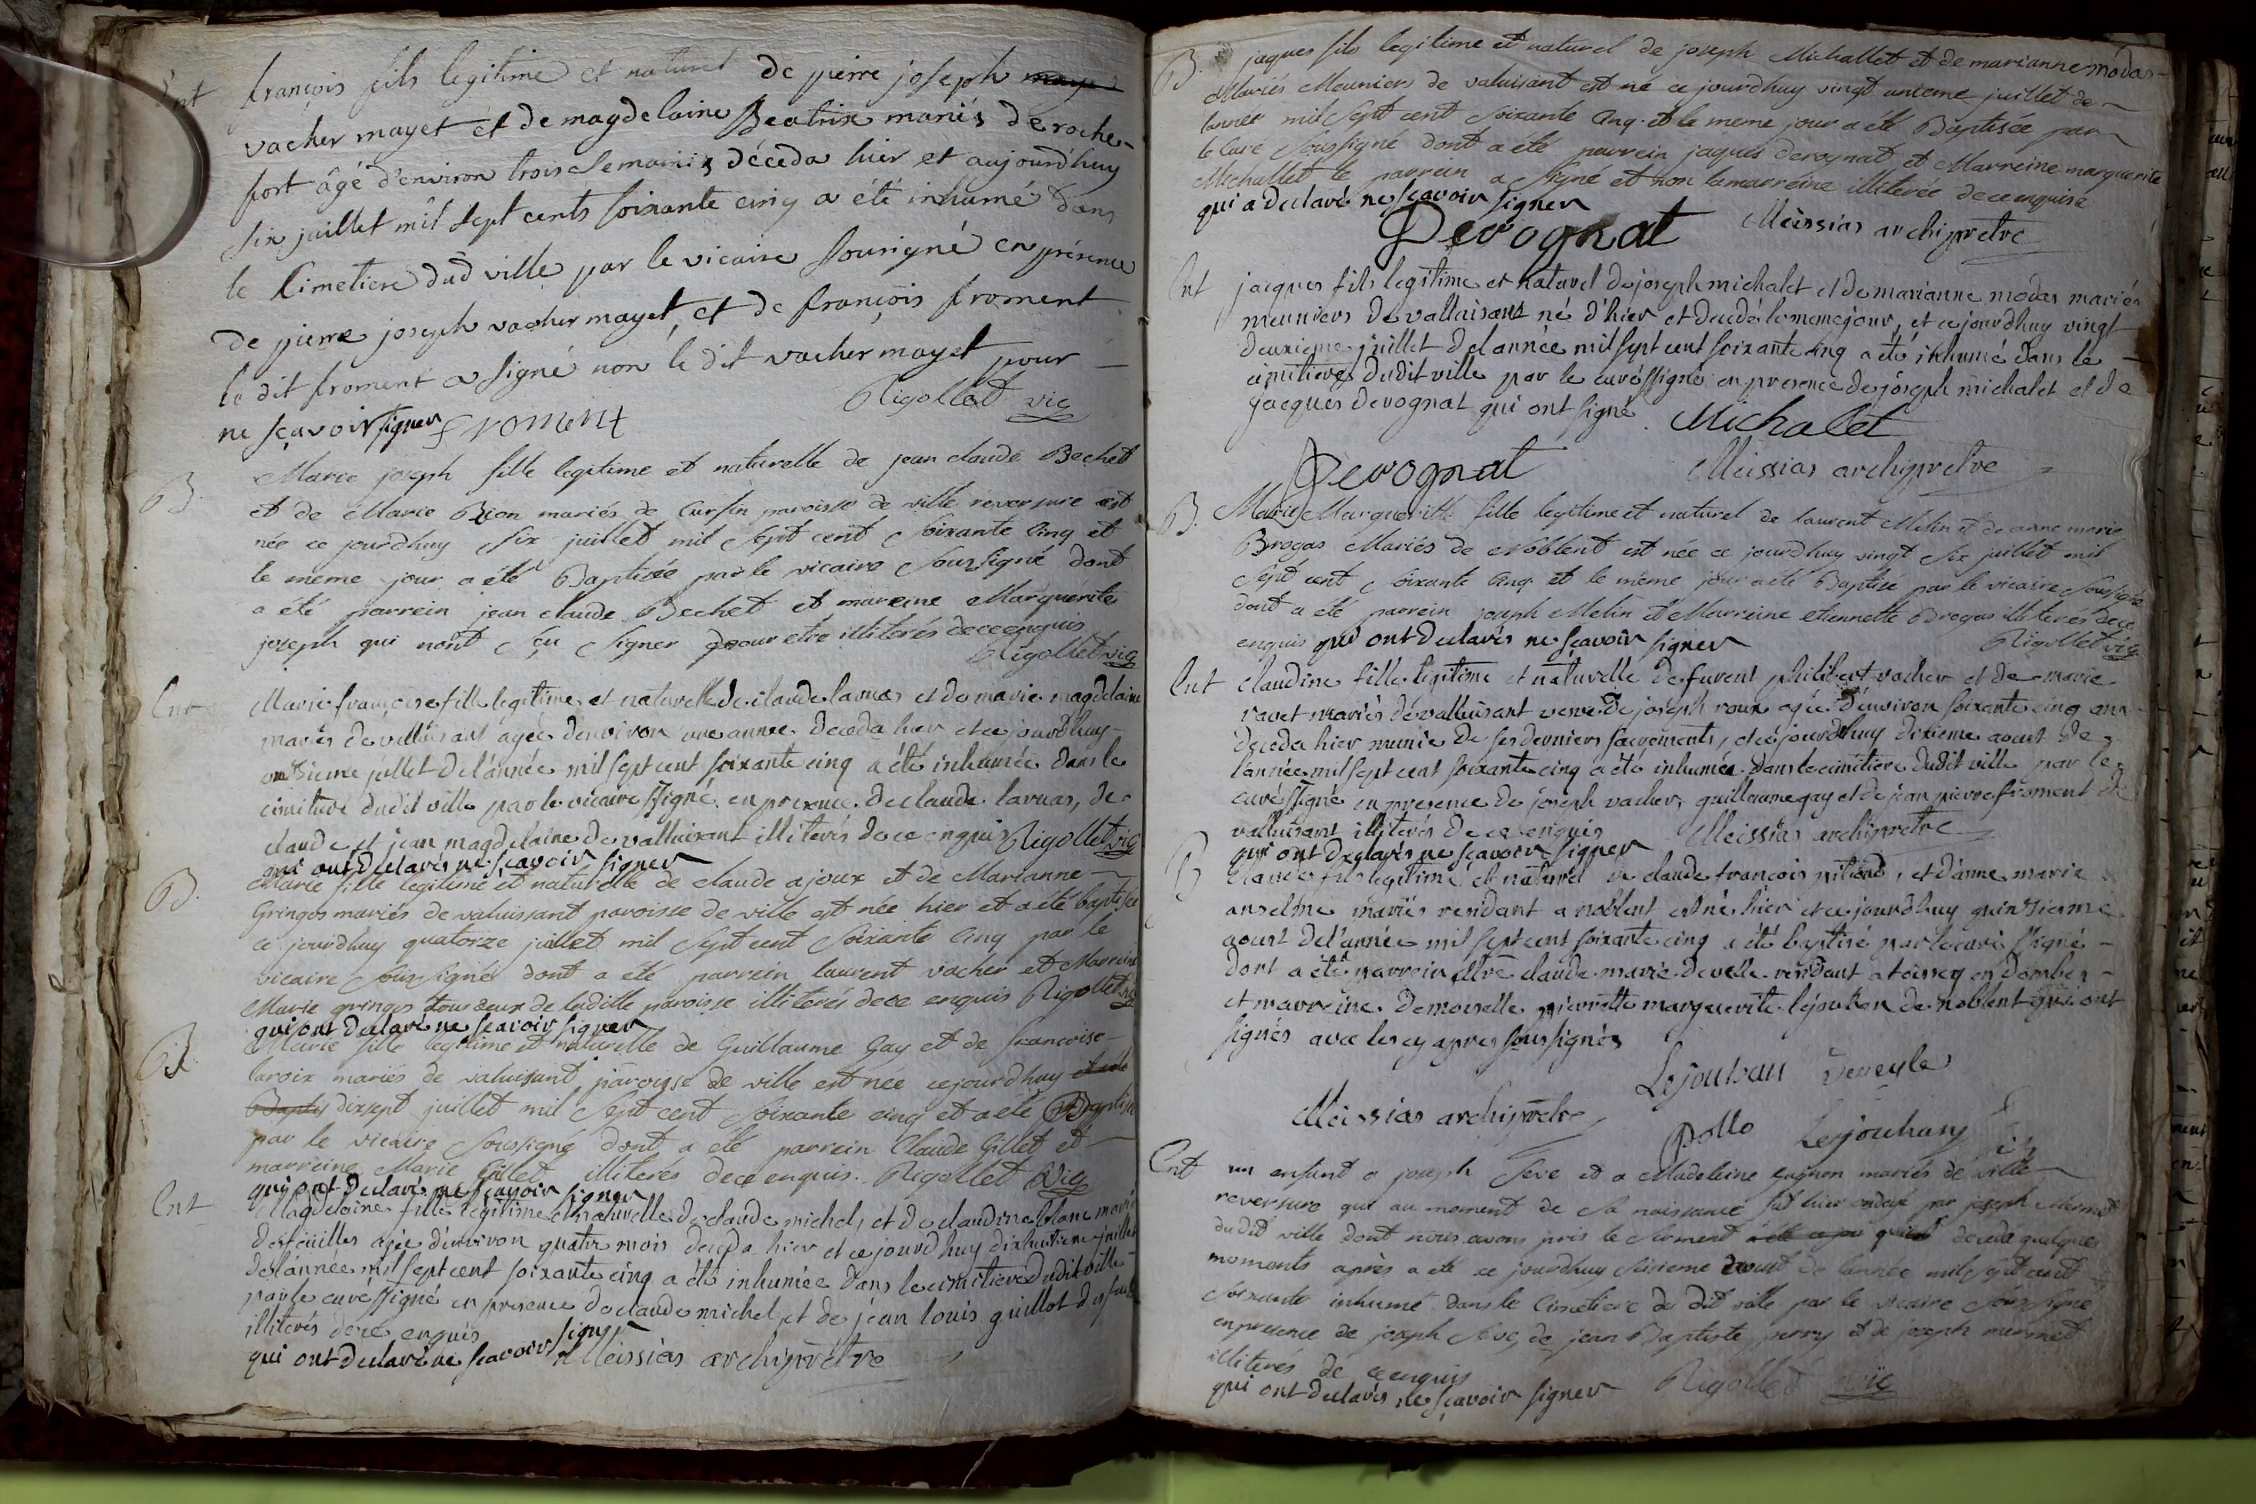 Ent
françois fils legitime et naturel de pierre joseph
vacher mayet et de magdelaine Beatrix mariés de roche-
fort âgé d'environ trois semaines déceda hier et aujourd'huy
six juillet mil sept cents soixante cinq a été inhumé dans
le Cimetiere dud ville par le vicaire sousigné en présence
de pierre joseph vacher mayet, et de françois froment
le dit froment a signé non le dit vacher mayet pour
ne sçavoir signer froment Rigollet vic
B.
Marie joseph fille legitime et naturelle de jean claude Bechet
et de Marie Bion mariés de Cursin paroisse de ville reversure est
née ce jourdhuy six juillet mil sept cent soixante cinq et
le meme jour a été Baptisée par le vicaire soussigné dont
a été parrein jean claude Bechet et mareine Marguerite
joseph qui nont sçu signer pour etre illiterés de ce enquis
Rigollet vic
Ent
Marie françoise fille legitime et naturelle de claude lavuas et de marie magdelaine
mariés de valluisant agée denviron une année deceda hier et ce jourdhuy
onzieme juillet de l'année mil sept cent soixante cinq a été inhumée dans le
cimitiere dudit ville par le vicaire ssigné en presence de claude lavuas, de
claude et jean magdelaine de valluisant illiterés de ce enquis Rigollet vic
qui ont declarés ne sçavoir signer
B.
Marie fille legitime et naturelle de claude ajoux et de Marianne
Gringos mariés de valuissant paroisse de ville est née hier et a été baptisée
ce jourdhuy quatorze juillet mil sept cent soixante cinq par le
vicaire soussigné dont a été parrein laurent vacher et Marreine
Marie gringos tous deux de ladille paroisse illiterés de ce enquis Rigollet vic
qui ont declaré ne sçavoir signer
B.
Marie fille legitime et naturelle de Guillaume Gay et de francoise
laroix mariés de valuisant paroisse de ville est née cejourdhuy
dixsept juillet mil sept cent soixante cinq et a été Baptisé
par le vicaire soussigné dont a été parrein Claude Gillet et
marreine Marie Gillet illiteres de ce enquis. Rigollet Vic
qui ont declarés ne sçavoir signer
Ent
Magdelaine fille legitime et naturelle de claude michel, et de claudine blanc mariés
desfeuilles agée d'environ quatre mois deceda hier et ce jourdhuy dixhuitieme juillet
de l'année mil sept cent soixante cinq a été inhumée dans le cimitiere dudit ville
par le curé ssigné en presence de claude michel et de jean louis guillot
illiterés de ce enquis
qui ont declaré ne sçavoir signer Meissias archiprêtre
B.
jaques fils legitime et naturel de joseph Michallet et de marianne modas
Mariés Meuniers de valuisant est né ce jourdhuy vingt unieme juillet de
lannée mil sept cent soixante cinq et le meme jour a été Baptisée par
le Curé soussigné dont a été parrein jaques devognat et Marreine marguerite
Michallet le parrein a signé et non la marreine illiterée de ce enquise
qui a declaré ne sçavoir signer
Devognat Meissias archipretre
Ent
jacques fils legitime et naturel de joseph michalet et de marianne modas mariés
meuniers de vallaisant né d'hier et decedé le meme jour, et ce jourdhuy vingt
deuxieme juillet de l'année mil sept cent soixante cinq a été inhumé dans le
cimitiere dudit ville par le curé ssigné en presence de joseph michalet et de
jacques devognat qui ont signé. Michalet
Devognat Meissias archipretre
B.
Marie Marguerithe fille legitime et naturel de laurent Melin et de anne marie
Brogas Mariés de Noblent est née ce jourdhuy vingt six juillet mil
sept cent soixante cinq et le même jour a été Baptisé par le vicaire soussigné
dont a été parrein joseph Melin et Marreine etiennette Brogas illiterés de ce
enquis qui ont declarés ne sçavoir signer Rigollet vic
Ent
claudine fille legitime et naturelle de furent philibert vacher et de marie
ravet mariés de valluisant veuve de joseph roux agée d'environ soixante cinq ans
deceda hier munie de ses derniers sacrements, et ce jourdhuy dixieme aoust de
l'année mil sept cent soixante cinq a été inhumée dans le cimitiere dudit ville par le
curé ssigné en presence de joseph vacher, guillaume gay et de jean pierre froment de
valluisant illiterés de ce enquis Meissias archipretre
qui ont declarés ne sçavoir signer
B
Claude fils legitime et naturel de claude françois et d'anne marie
anselme mariés residant a noblent est né hier et ce jourdhuy quinzieme
aoust de l'année mil sept cent soixante cinq a été baptisé par le curé ssigné
dont a été parrein claude marie residant a toissey en dombes
et marreine demoiselle pierrette marguerite de noblent qui ont
signés avec les cy apres soussignés
Meissias archipretre
Ent
un enfant a joseph seve et a Madeleine gagnon mariés de ville
reversure qui au moment de sa naissance fut hier ondoié par joseph Mermet
dudit ville dont nous avons pris le serment deceda quelques
moments après a été ce jourdhuy seizieme aoust de lannée mil sept cent
soixante inhumé dans le Cimetiere du dit ville par le vicaire soussigné
en presence de joseph seve, de jean Baptiste perry et de joseph mermet
illiterés de ce enquis
qui ont declarés ne sçavoir signer Rigollet vic